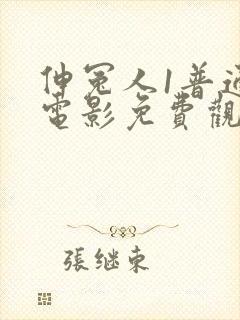 伸冤人1普通
電影免費觀
張继東